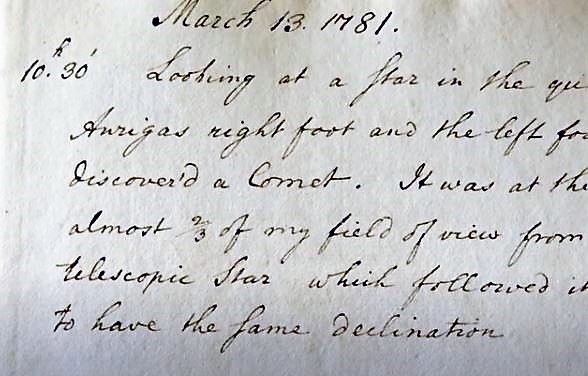 March 13. 1781.
10.h 30' Looking at a star in the qu
Aurigas right foot and the left fo
discover'd a Comet. It was at the
almost 2/3 of my field of view from
telescopic star which followed it
to have the same declination